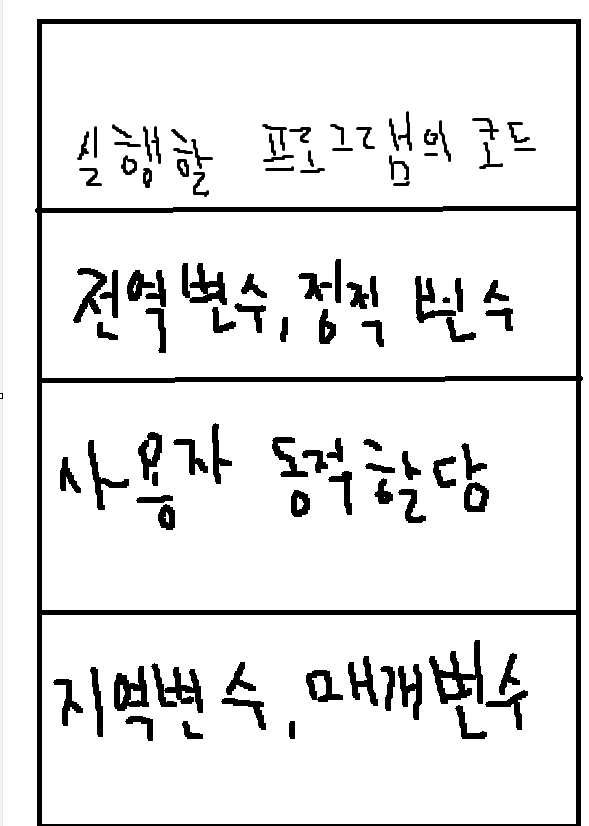 실행할 프로그램의 코드
전역변수, 정적 변수
사용자 동적할당
지역변수, 매개변수